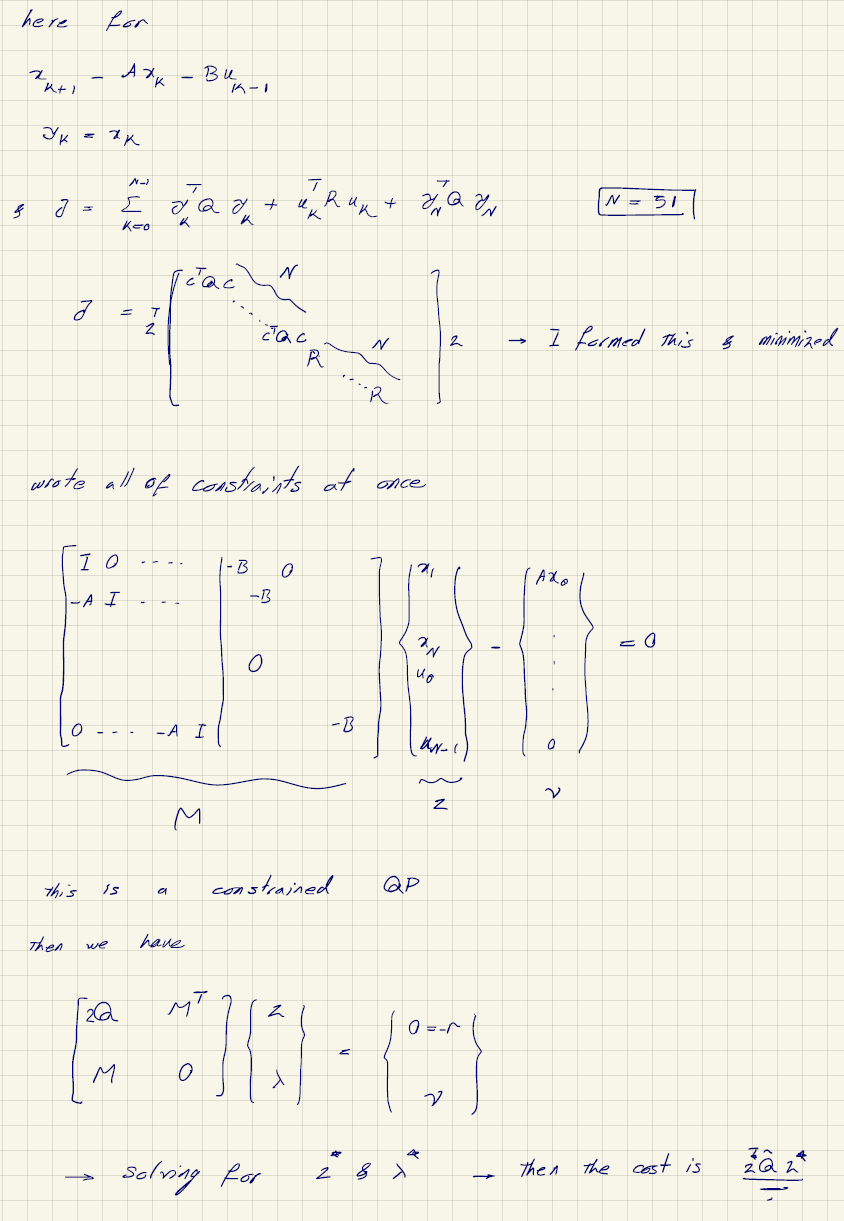 here for
x_{K+1} - A x_K - B u_{K-1}
y_K = x_K
& J = \sum_{K=0}^{N-1} y_K^T Q y_K + u_K^T R u_K + y_N^T Q y_N   N = 51
J = z^T [ C^T Q C ... C^T Q C (N) R ... R (N) ] z → I formed this & minimized
wrote all of constraints at once
[ I 0 ···· | -B 0
-A I ··· | -B
0
0 --- -A I | -B ] { x_1 x_N u_0 u_{N-1} } - { A x_0 ⋮ 0 } = 0
M z ν
this is a constrained QP
Then we have
[ 2Q M^T ; M 0 ] { z ; λ } = { 0 = -r ; ν }
→ solving for z^* & λ^* → then the cost is z^T Q̂ z^*